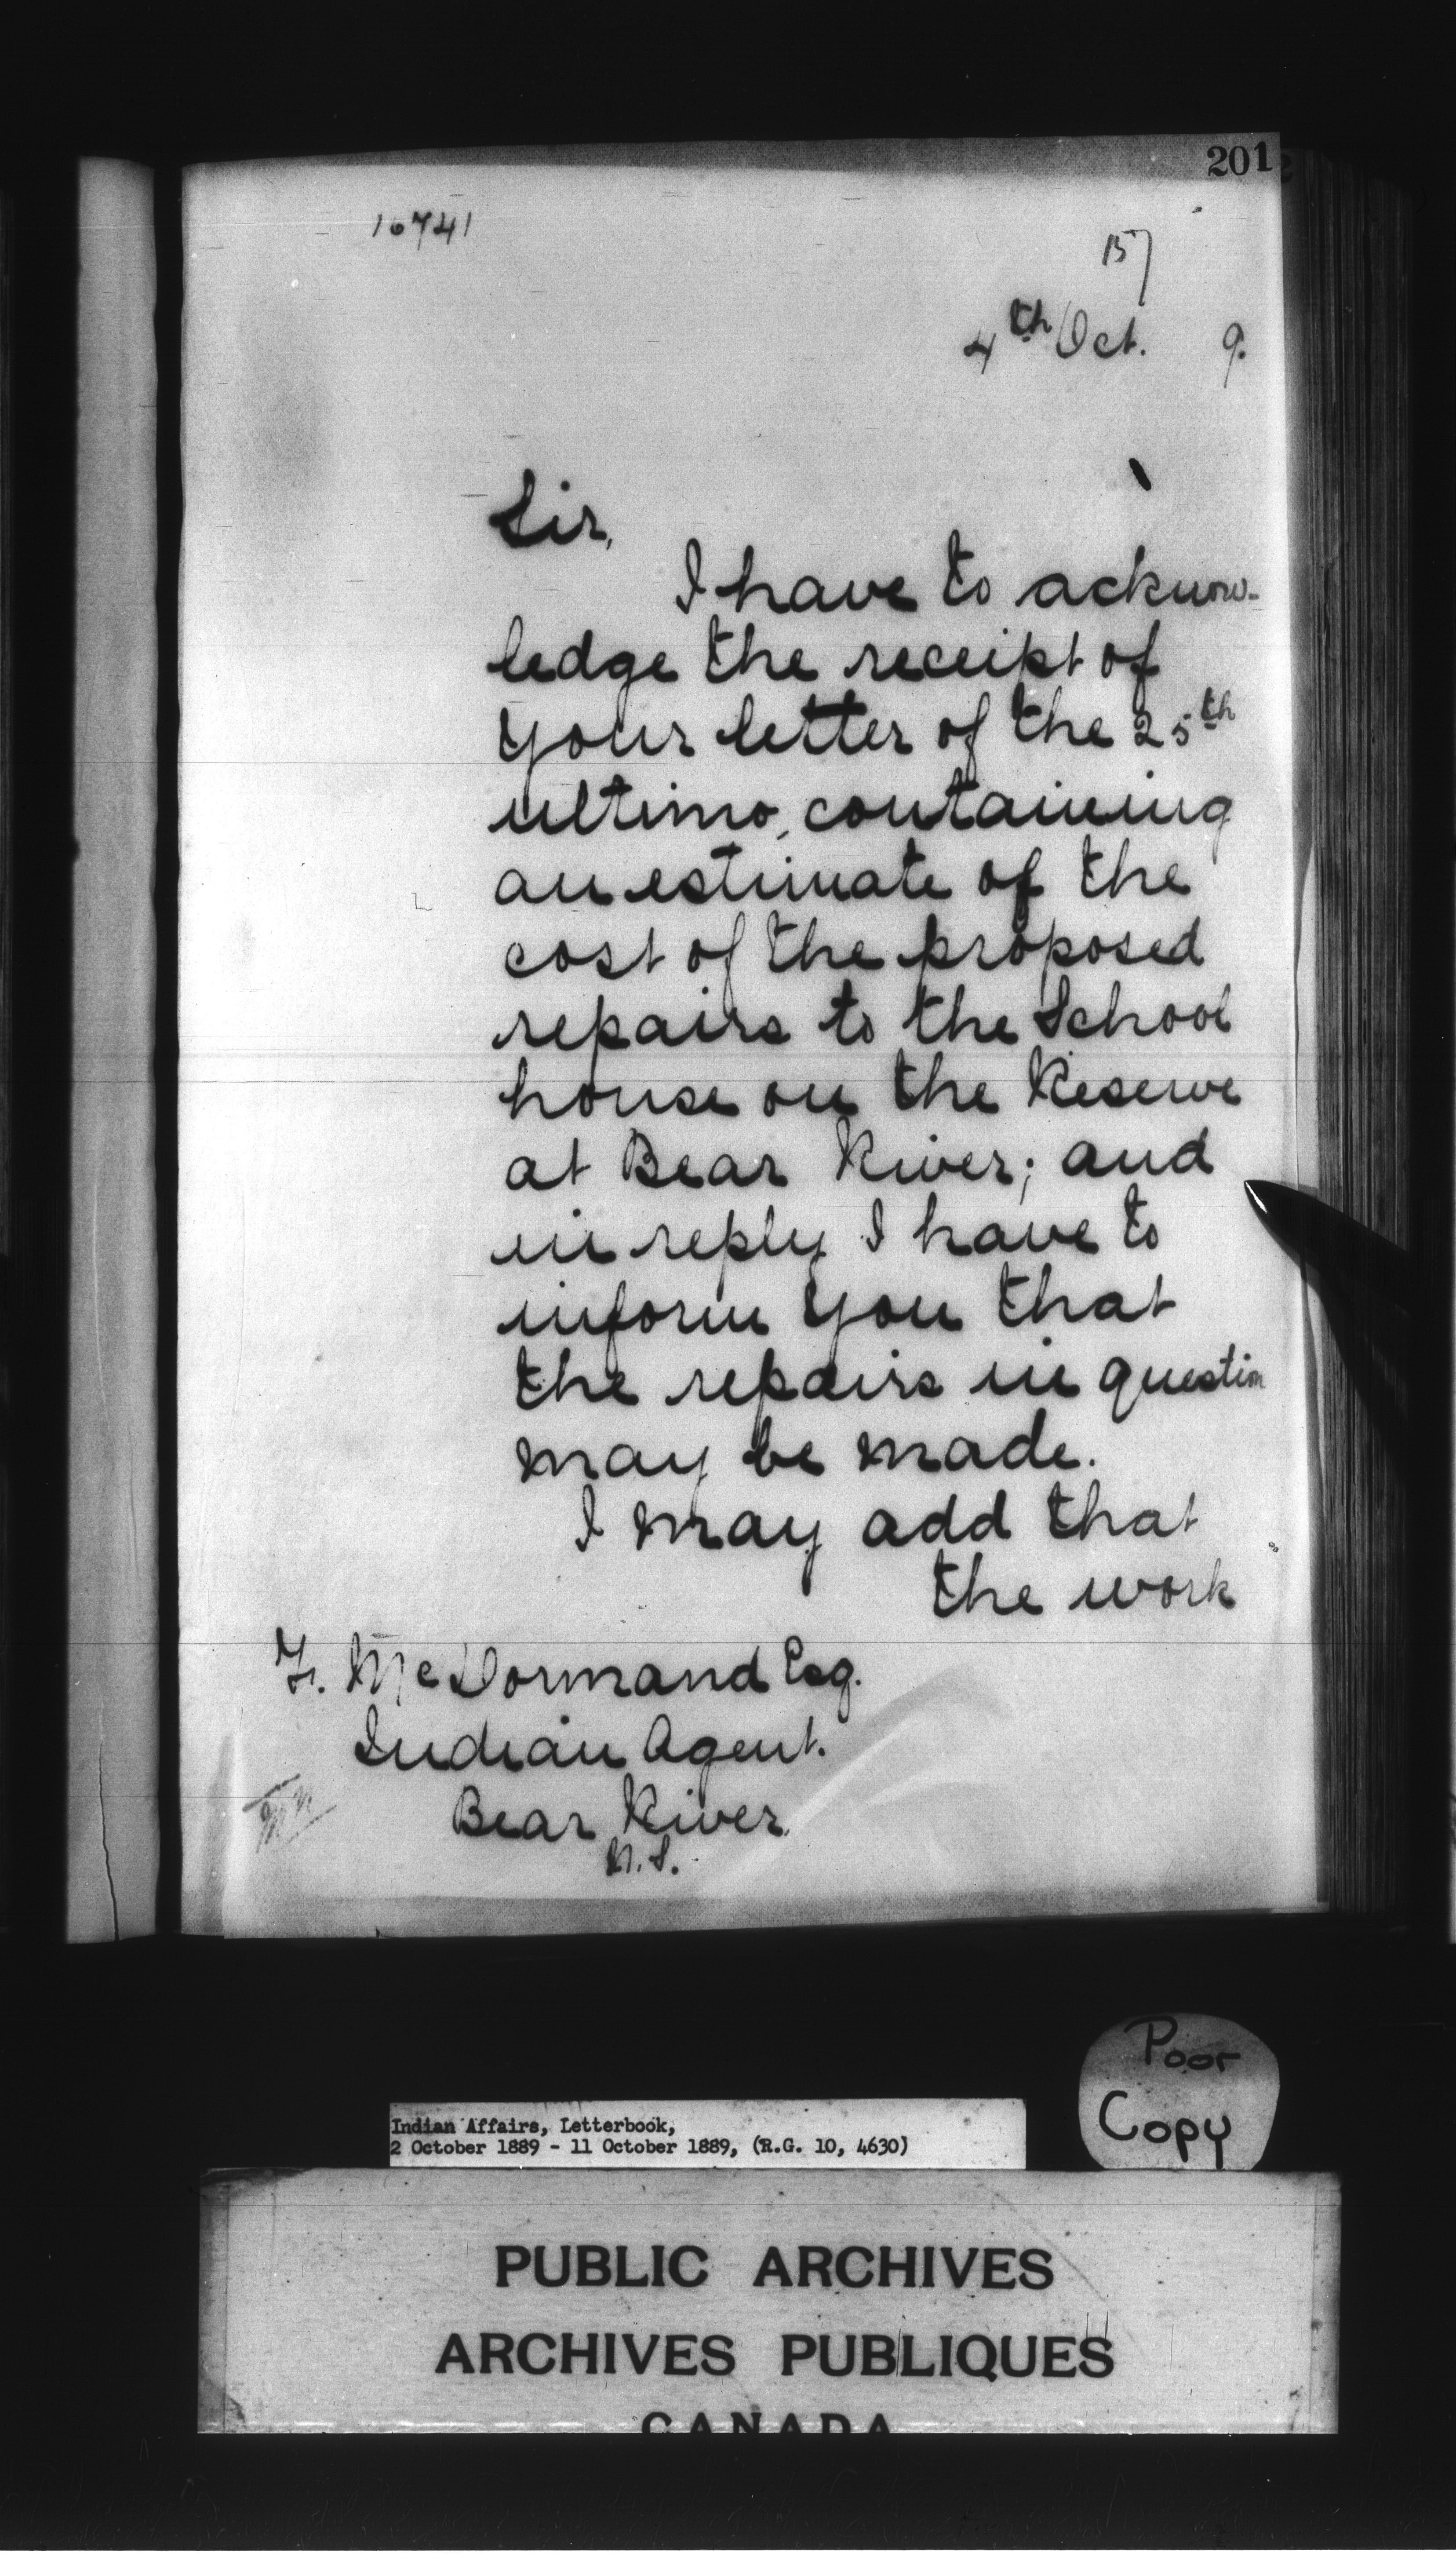 201
16741
157
4th Oct. 9.
Sir,
I have to acknow-
ledge the receipt of
your letter of the 25th
ultimo, containing
an estimate of the
cost of the proposed
repairs to the School
house on the Reserve
at Bear River; and
in reply I have to
inform you that
the repairs in question
may be made.
I may add that
the work
F. McDormand Esq.
Indian Agent.
Bear River
N.S.
Poor
Copy
Indian Affairs, Letterbook,
2 October 1889 - 11 October 1889, (R.G. 10, 4630)
PUBLIC ARCHIVES
ARCHIVES PUBLIQUES
CANADA